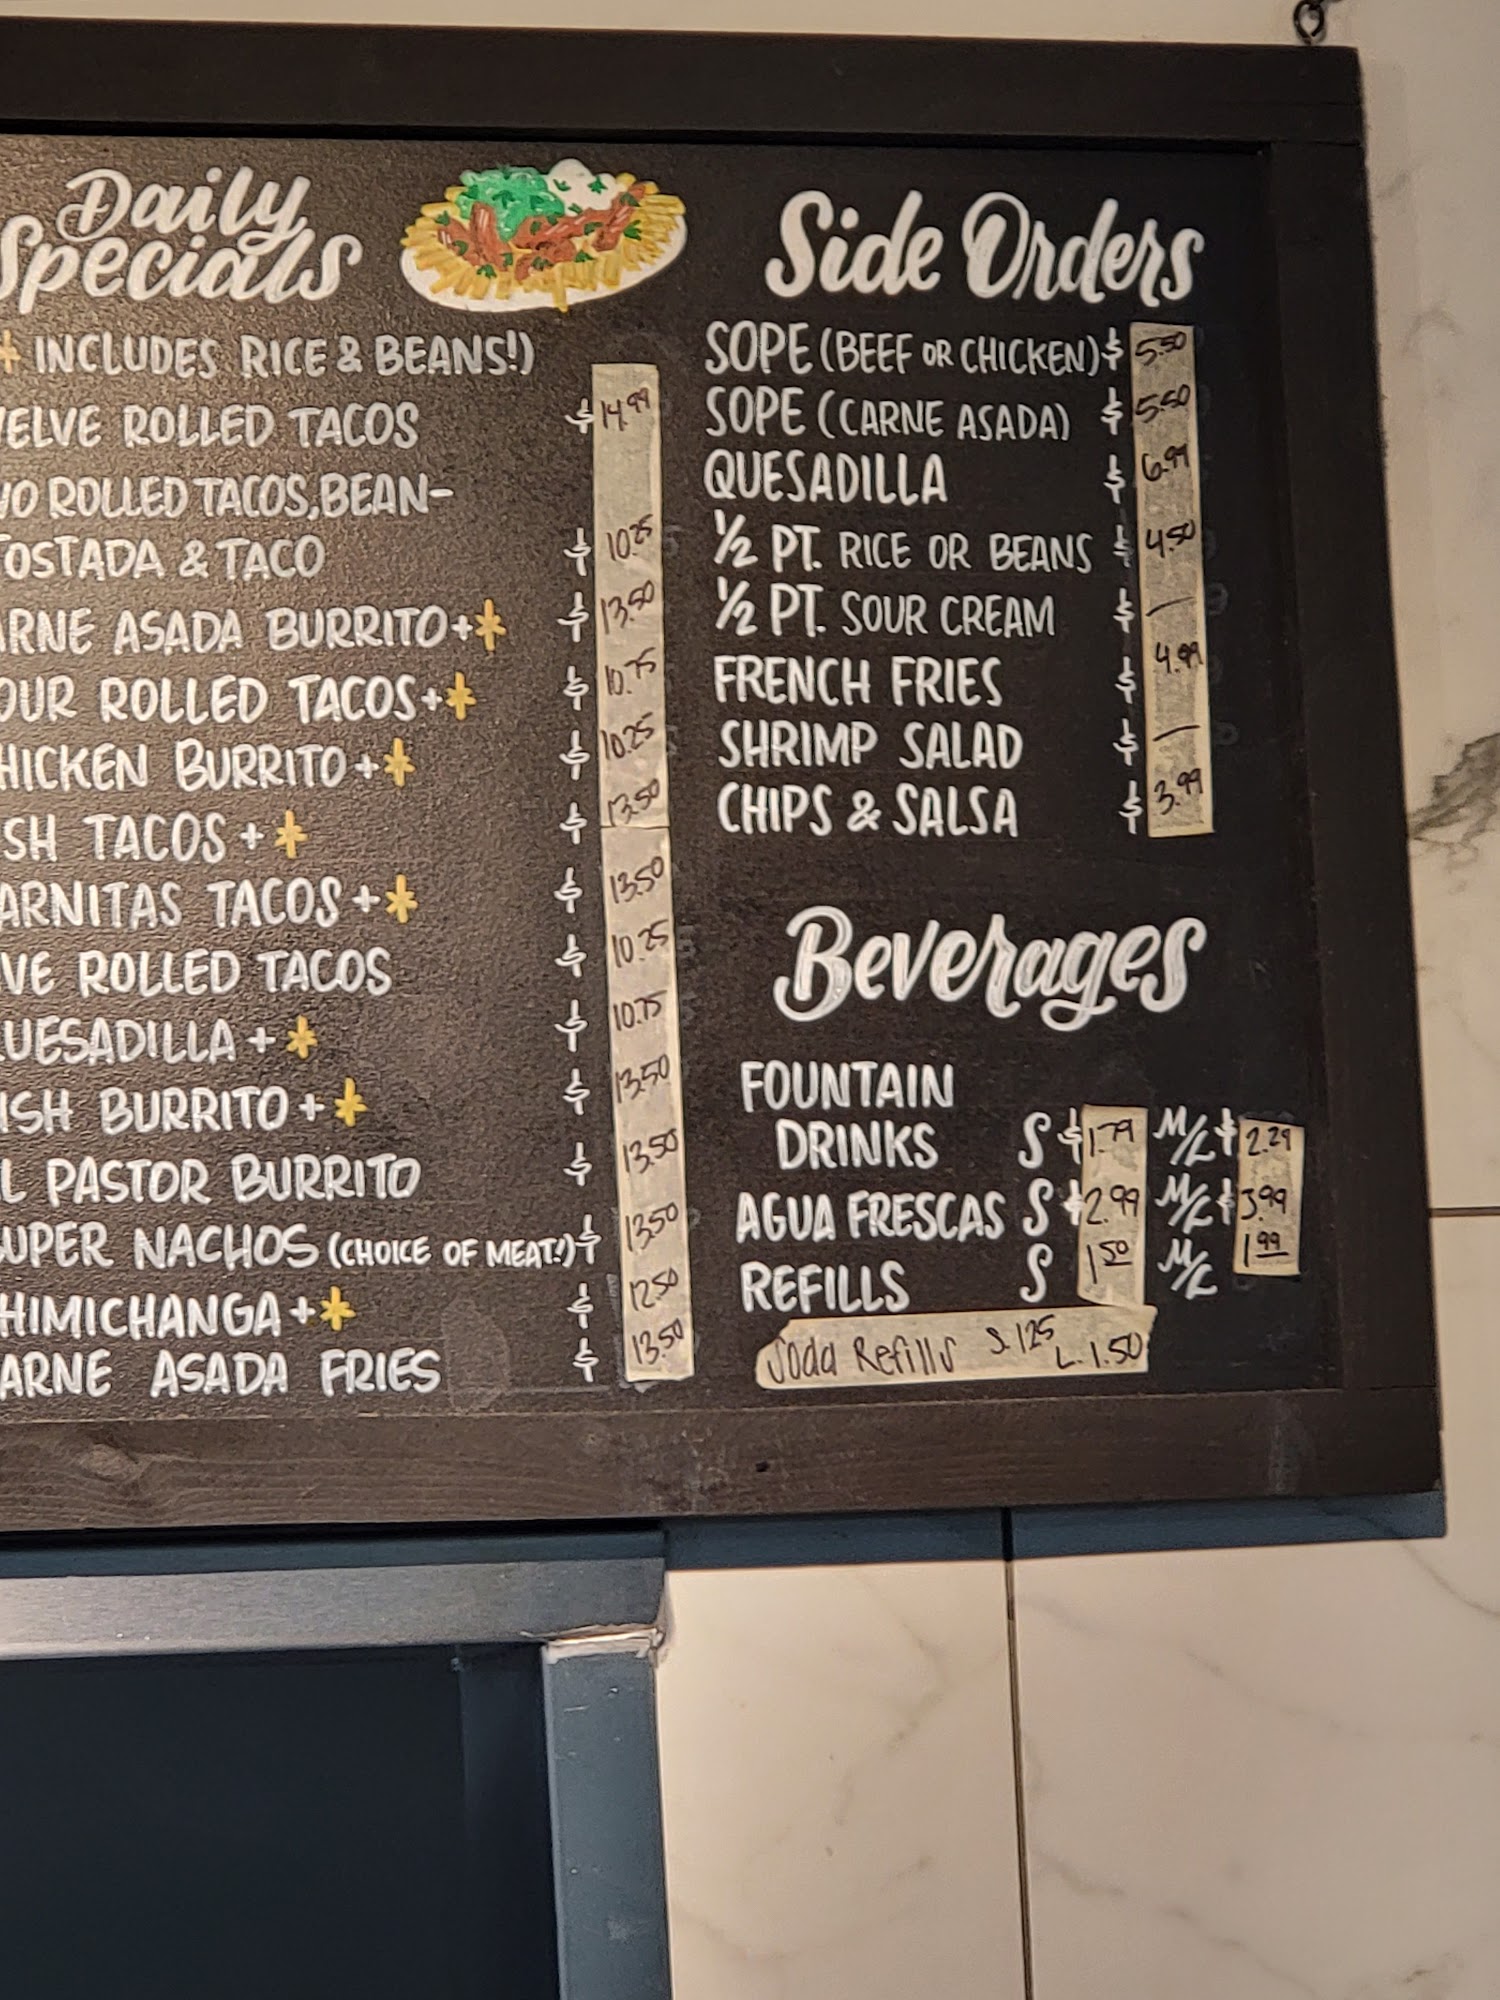 Daily
Specials
* INCLUDES RICE & BEANS!)
ELVE ROLLED TACOS $14.99
WO ROLLED TACOS, BEAN-
TOSTADA & TACO $10.25
ARNE ASADA BURRITO+* $13.50
OUR ROLLED TACOS+* $10.75
HICKEN BURRITO+* $10.25
ISH TACOS+* $13.50
ARNITAS TACOS+* $13.50
VE ROLLED TACOS $10.25
UESADILLA+* $10.75
ISH BURRITO+* $13.50
L PASTOR BURRITO $13.50
SUPER NACHOS (CHOICE OF MEAT!) $13.50
HIMICHANGA+* $12.50
ARNE ASADA FRIES $13.50
Side Orders
SOPE (BEEF OR CHICKEN) $5.50
SOPE (CARNE ASADA) $5.50
QUESADILLA $6.99
1/2 PT. RICE OR BEANS $4.50
1/2 PT. SOUR CREAM $ —
FRENCH FRIES $4.99
SHRIMP SALAD $ —
CHIPS & SALSA $3.99
Beverages
FOUNTAIN
DRINKS S $1.79 M/L $2.29
AGUA FRESCAS S $2.99 M/L $3.99
REFILLS S 1 50 M/L 1 99
Soda Refills S. 1.25 L. 1.50